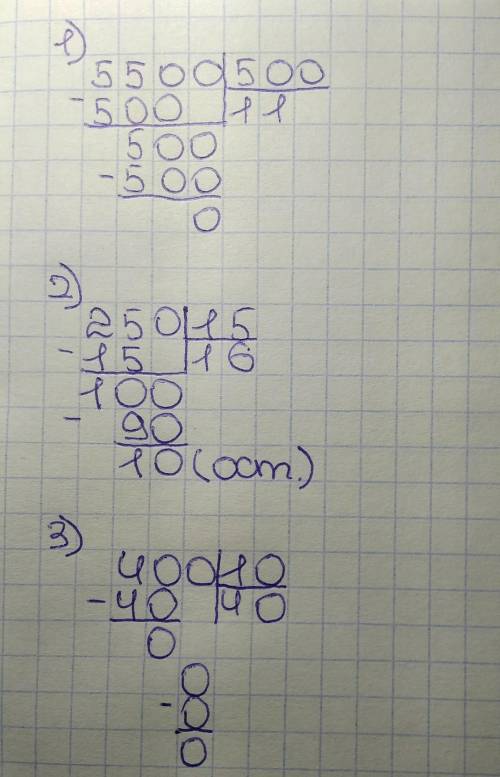 1)
5500 500
- 500 11
500
- 500
0
2)
250 15
- 15 16
100
- 90
10 (ост.)
3)
400 10
- 40 40
0
0
- 0
0